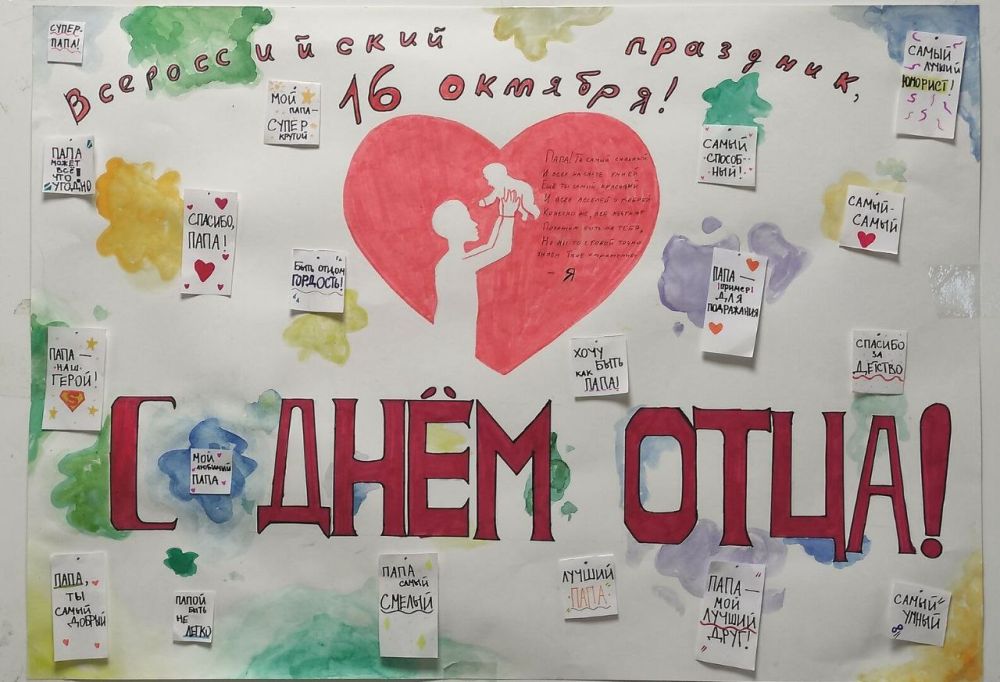 Всероссийский праздник,
16 октября!
СУПЕР-
ПАПА!
МОЙ
ПАПА —
СУПЕР
КРУТОЙ
САМЫЙ
ЛУЧШИЙ
ЮМОРИСТ!
ПАПА
МОЖЕТ
ВСЁ!
ЧТО
УГОДНО
СПАСИБО,
ПАПА!
БЫТЬ ОТЦОМ
ГОРДОСТЬ!
Папа! Ты самый сильный
И всех на свете умней
Ещё ты самый красивый
И всех веселей и добрей
Конечно же, все мечтают
быть на тебя,
Но
— Я
САМЫЙ
СПОСОБ-
НЫЙ!
САМЫЙ-
САМЫЙ
ПАПА —
ПРИМЕР
ДЛЯ
ПОДРАЖАНИЯ
ПАПА —
НАШ
ГЕРОЙ!
S
ХОЧУ
БЫТЬ
КАК
ПАПА!
СПАСИБО
ЗА
ДЕТСТВО
С ДНЁМ ОТЦА!
МОЙ
ЛЮБИМЫЙ
ПАПА
ПАПА,
ТЫ
САМЫЙ
ДОБРЫЙ
ПАПОЙ
БЫТЬ
НЕ
ЛЕГКО
ПАПА
САМЫЙ
СМЕЛЫЙ
ЛУЧШИЙ
ПАПА
ПАПА —
МОЙ
ЛУЧШИЙ
ДРУГ!
САМЫЙ
УМНЫЙ